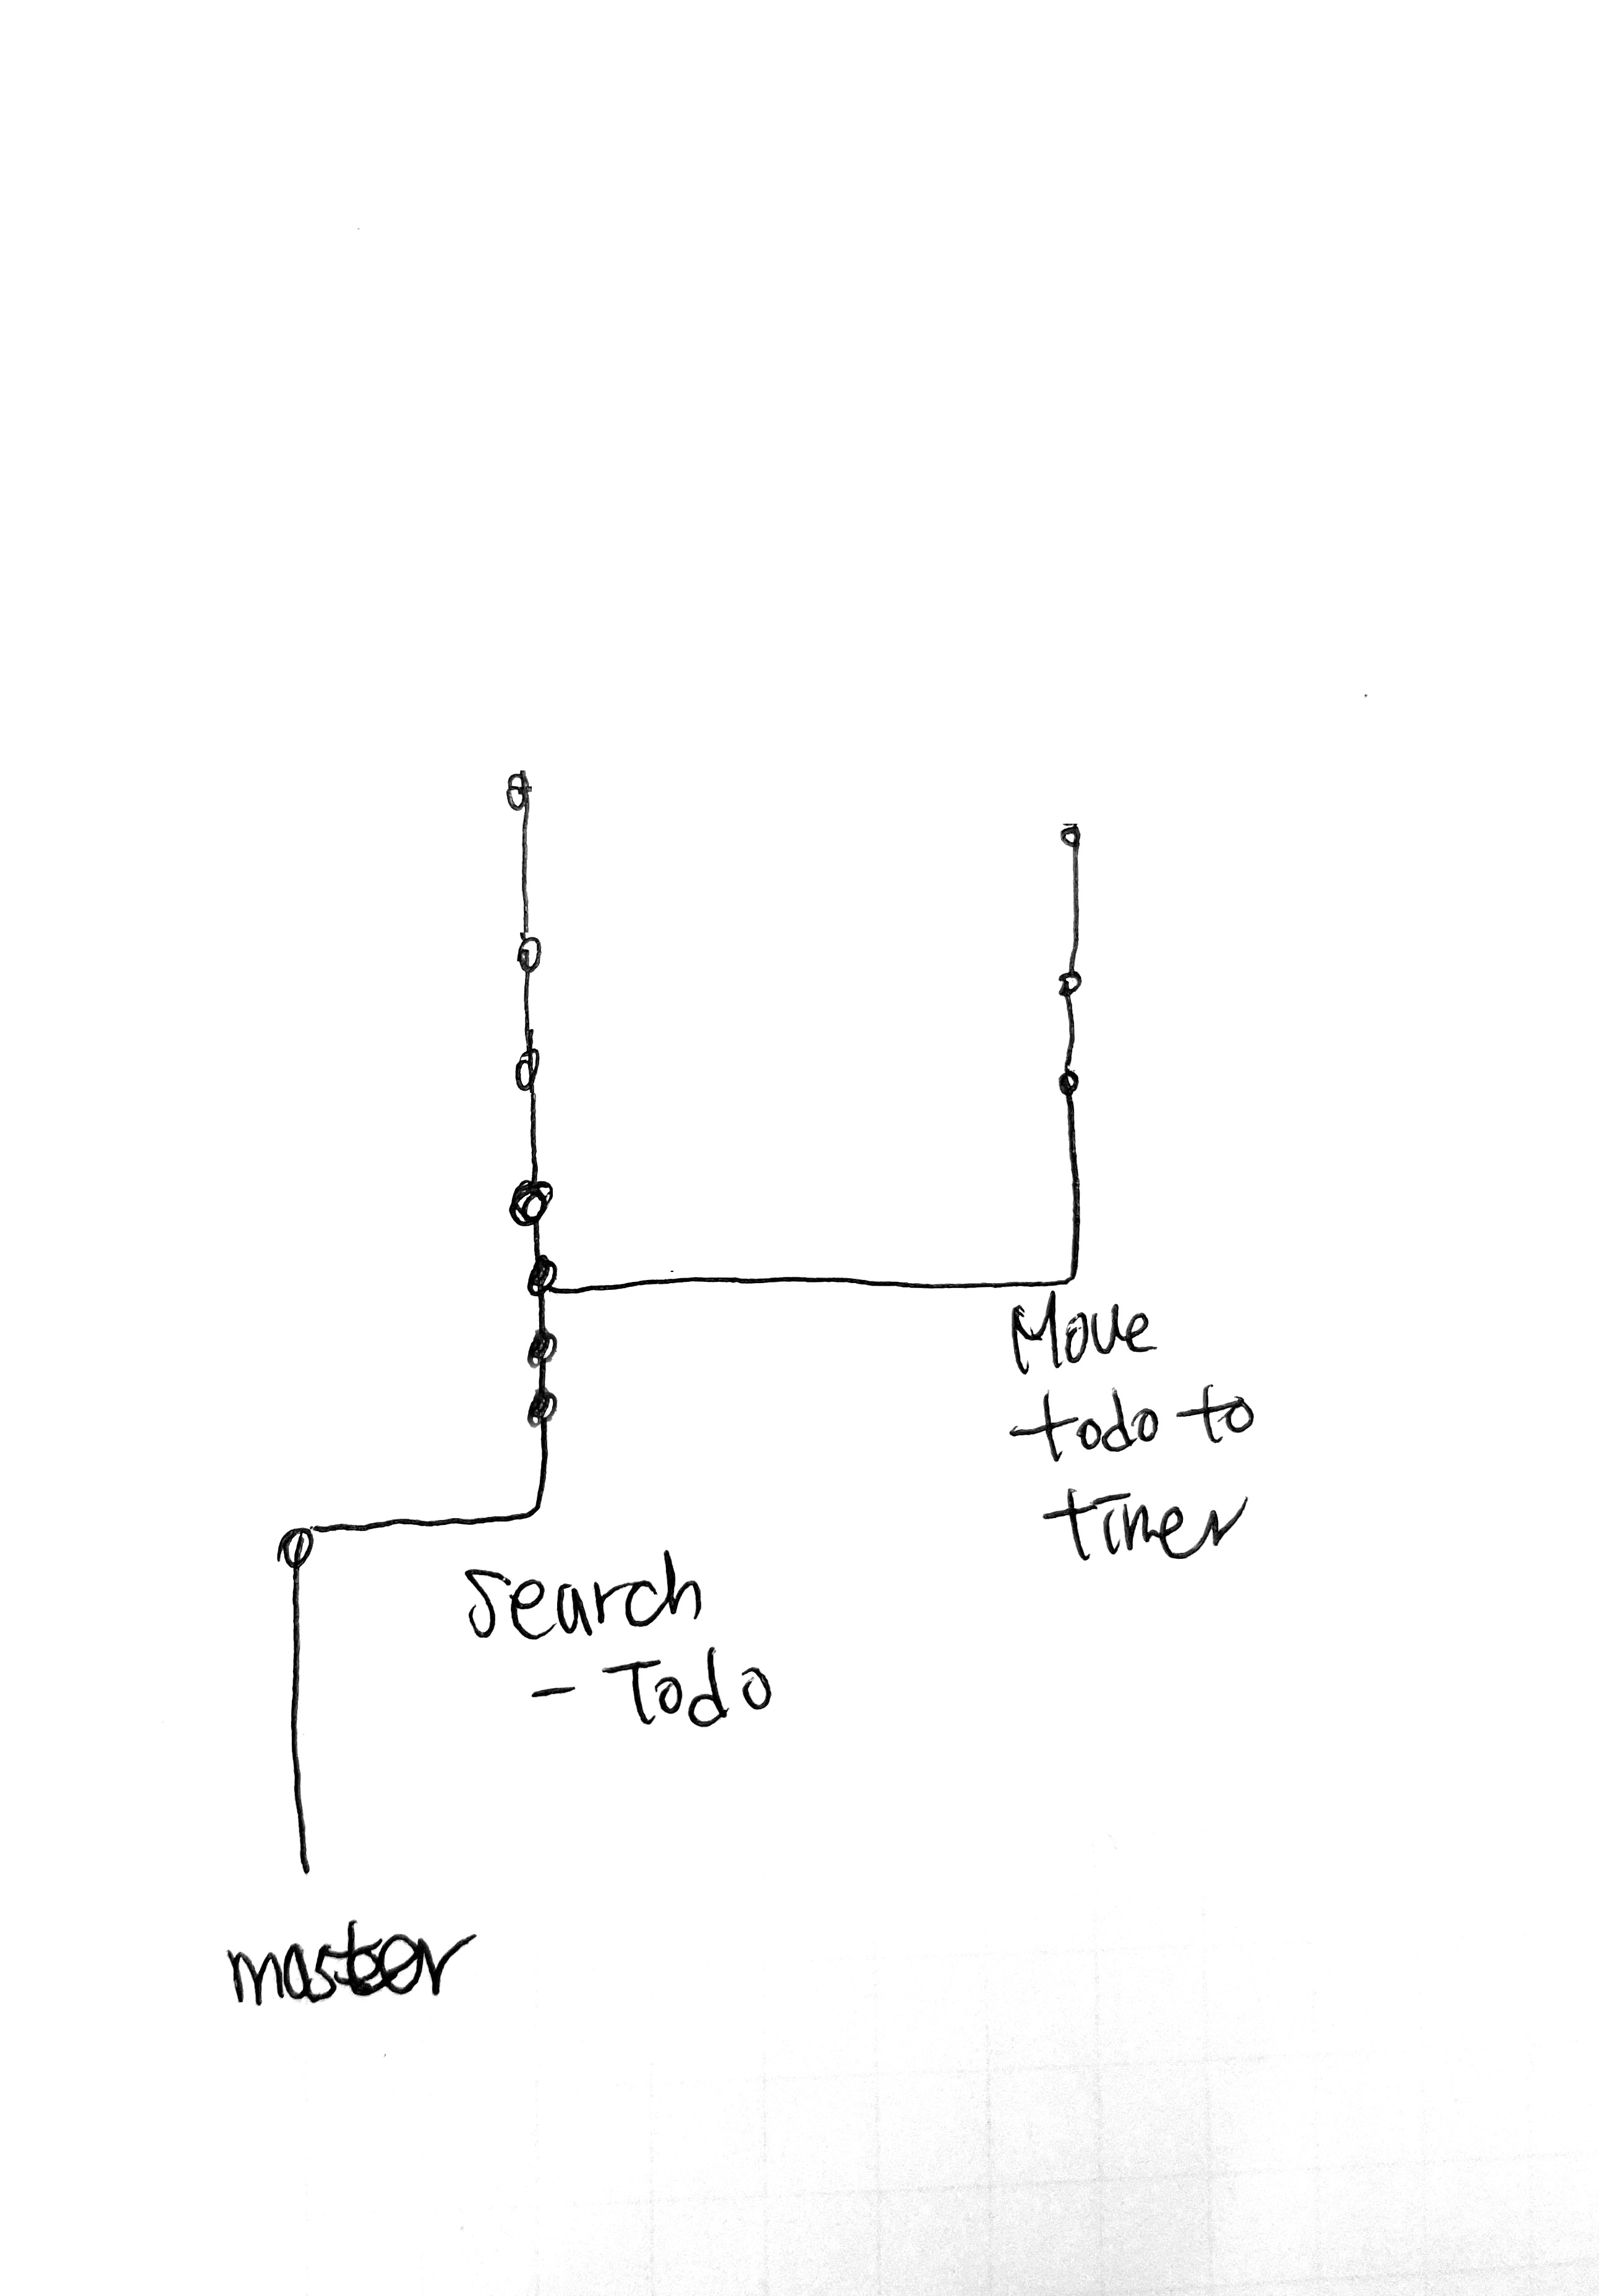 Move
todo to
timer
Search
- Todo
master